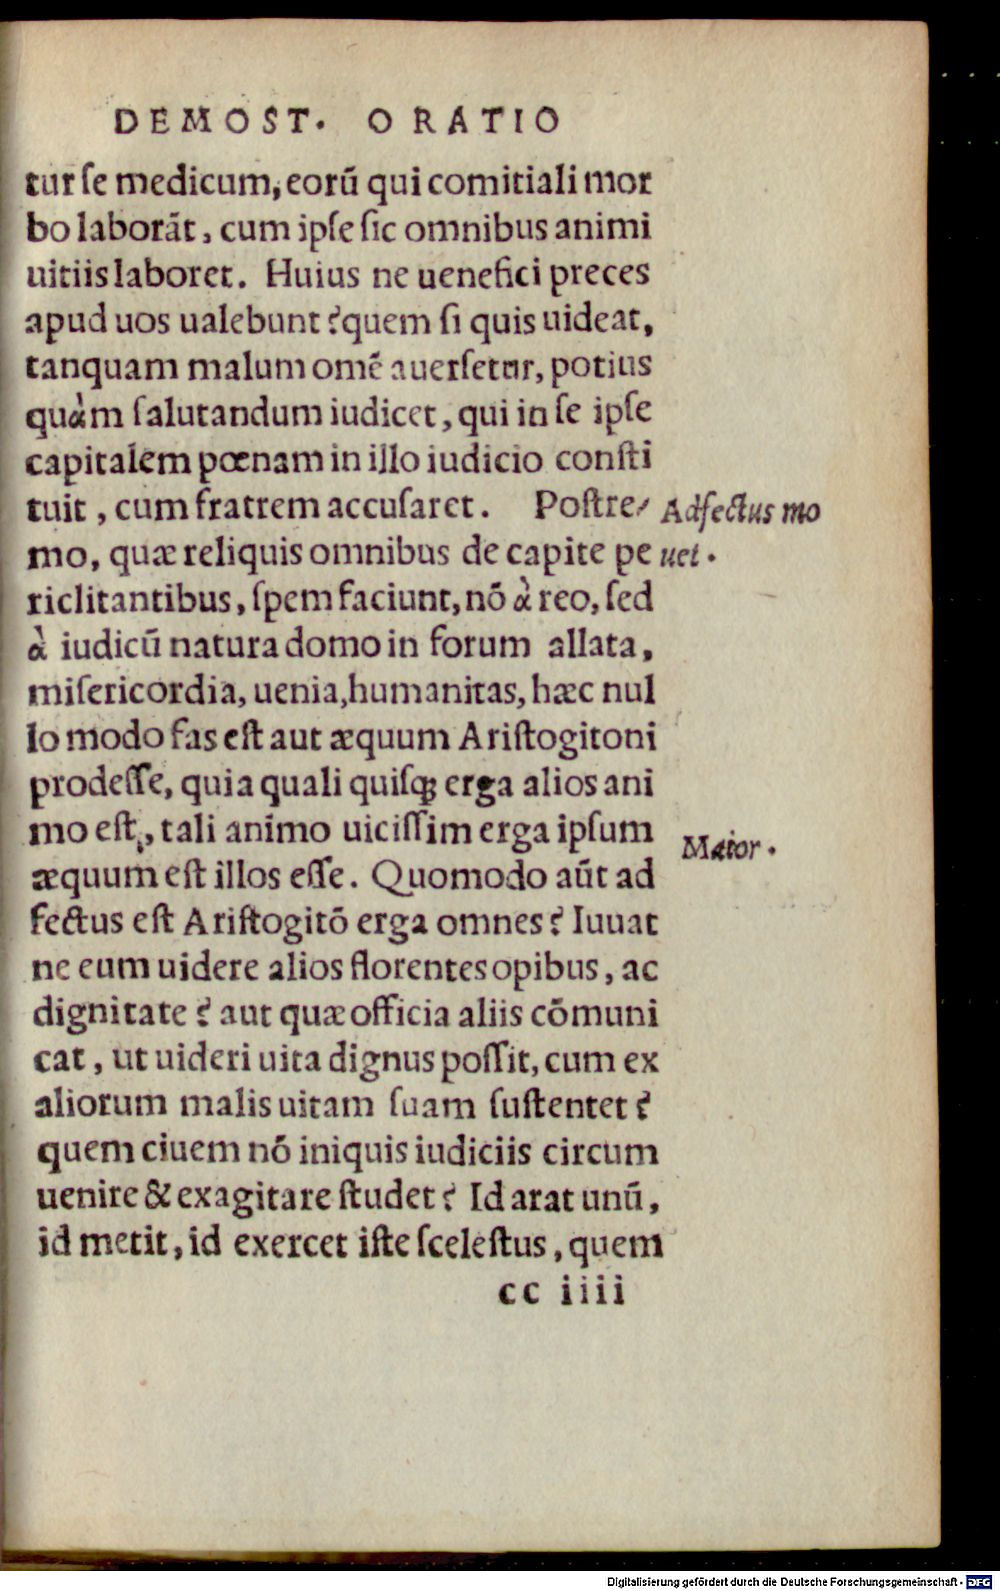 DEMOST. ORATIO
tur ſe medicum, eorū qui comitiali mor
bo laborāt, cum ipſe ſic omnibus animi
uitiis laboret. Huius ne uenefici preces
apud uos ualebunt? quem ſi quis uideat,
tanquam malum omē auerſetur, potius
quàm ſalutandum iudicet, qui in ſe ipſe
capitalem pœnam in illo iudicio conſti
tuit, cum fratrem accuſaret. Poſtre/ Adfectus mo
mo, quæ reliquis omnibus de capite pe uet.
riclitantibus, ſpem faciunt, nō à reo, ſed
à iudicū natura domo in forum allata,
miſericordia, uenia, humanitas, hæc nul
lo modo fas eſt aut æquum Ariſtogitoni
prodeſſe, quia quali quiſqꝫ erga alios ani
mo eſt, tali animo uiciſſim erga ipſum
Maior.
æquum eſt illos eſſe. Quomodo aūt ad
fectus eſt Ariſtogitō erga omnes? Iuuat
ne eum uidere alios florentes opibus, ac
dignitate? aut quæ officia aliis cōmuni
cat, ut uideri uita dignus poſſit, cum ex
aliorum malis uitam ſuam ſuſtentet?
quem ciuem nō iniquis iudiciis circum
uenire & exagitare ſtudet? Id arat unū,
id metit, id exercet iſte ſceleſtus, quem
cc iiii
Digitalisierung gefördert durch die Deutsche Forschungsgemeinschaft - DFG